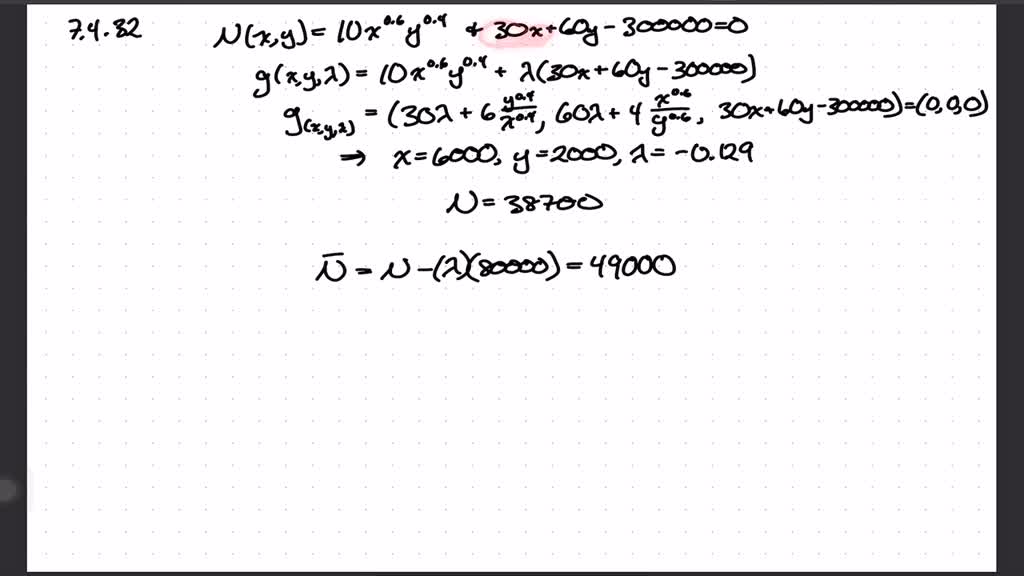 7.4.32 N(x,y) = 10x^0.6 y^0.4 & 30x+60y-300000=0
g(x,y,λ) = 10x^0.6 y^0.4 + λ(30x+60y-300000)
g(x,y,λ) = (30λ + 6 y^0.4/x^0.4, 60λ + 4 x^0.6/y^0.6, 30x+60y-300000) = (0,0,0)
⇒ x=6000, y=2000, λ=-0.129
N = 38700
N̄ = N - (λ)(80000) = 49000